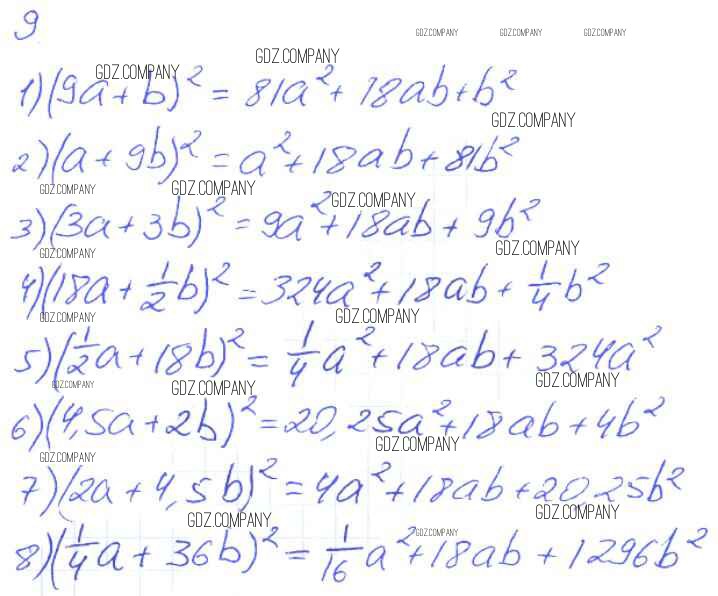 9
GDZ.COMPANY GDZ.COMPANY GDZ.COMPANY
GDZ.COMPANY
GDZ.COMPANY
1) (9a + b)² = 81a² + 18ab + b²
GDZ.COMPANY
2) (a + 9b)² = a² + 18ab + 81b²
GDZ.COMPANY GDZ.COMPANY GDZ.COMPANY
3) (3a + 3b)² = 9a² + 18ab + 9b²
GDZ.COMPANY GDZ.COMPANY
4) (18a + 1/2 b)² = 324a² + 18ab + 1/4 b²
GDZ.COMPANY GDZ.COMPANY
5) (1/2 a + 18b)² = 1/4 a² + 18ab + 324a²
GDZ.COMPANY GDZ.COMPANY GDZ.COMPANY
6) (4,5a + 2b)² = 20,25a² + 18ab + 4b²
GDZ.COMPANY GDZ.COMPANY
7) (2a + 4,5b)² = 4a² + 18ab + 20,25b²
GDZ.COMPANY GDZ.COMPANY
8) (1/4 a + 36b)² = 1/16 a² + 18ab + 1296b²
GDZ.COMPANY